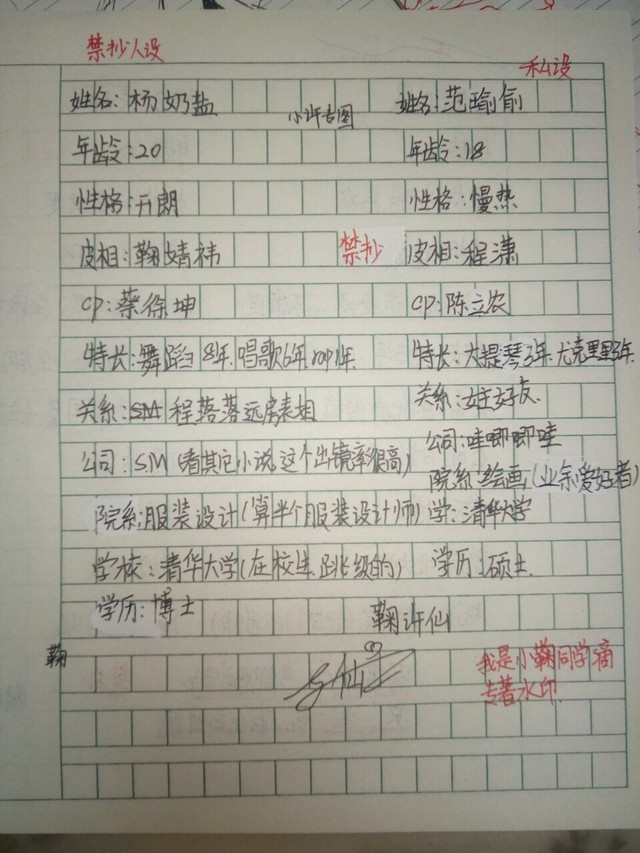 禁抄人设
私设
姓名:杨奶盐
小许专图
姓名:范瑜俞
年龄:20
年龄:18
性格:开朗
性格:慢热
皮相:鞠婧祎
禁抄
皮相:程潇
cp:蔡徐坤
cp:陈立农
特长:舞蹈8年.唱歌6年.rap1年.
特长:大提琴3年.尤克里里3年.
关系:程落落远房表姐
关系:女主好友
公司:SM(看其它小说,这个出镜率很高)
公司:哇唧唧哇
院系:绘画(业余爱好者)
院系:服装设计(算半个服装设计师)
学:清华大学
学校:清华大学(在校生.跳级的)
学历:硕士.
学历:博士
鞠许仙
鞠
我是小鞠同学滴
专著水印.